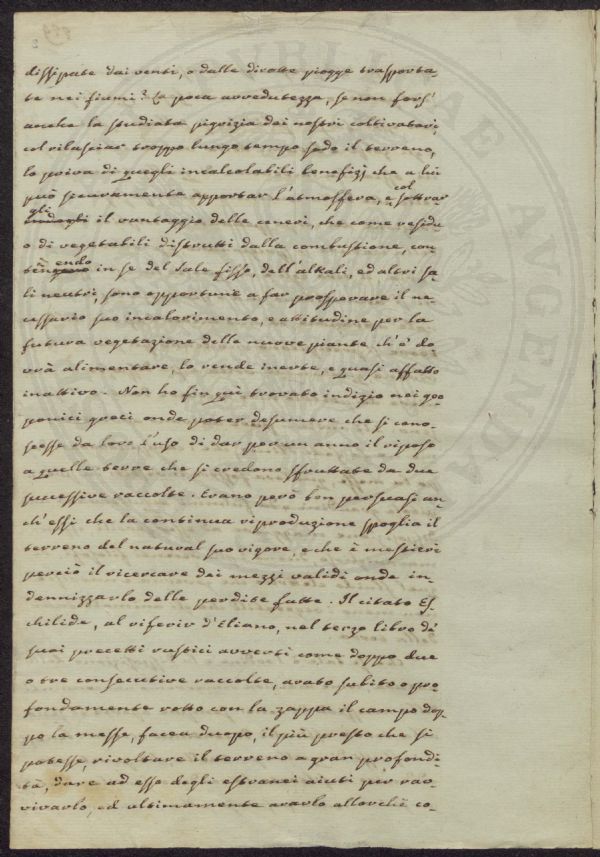 dissipate dai venti, o dalle dirotte piogge trasporta-
te nei fiumi? La poca avvedutezza, se non fors'
anche la studiata pigrizia dei nostri coltivatori
col rilasciar troppo lungo tempo sodo il terreno,
lo priva di quegli incalcolabili benefizj che a lui
può sicuramente apportar l'atmosfera, e col sottrar
gli il vantaggio delle ceneri, che come residu
o di vegetabili distrutti dalla combustione, con-
tenendo in se del Sale fisso, dell'alkali, ed altri sa-
li neutri, sono opportune a far prosperare il ne-
cessario suo incalorimento, e attitudine per la
futura vegetazione delle nuove piante ch'è do
vrà alimentare, lo rende inerte, e quasi affatto
inattivo. Non ho fin quì trovato indizio nei geo
ponici greci onde poter desumere che si cono-
scesse da loro l'uso di dar per un anno il riposo
a quelle terre che si credono sfruttate da due
successive raccolte. Erano però ben persuasi an-
ch'essi che la continua riproduzione spoglia il
terreno del natural suo vigore, e che è mestieri
perciò il ricercare dei mezzi validi onde in-
dennizzarlo delle perdite fatte. Il citato Es-
chilide, al riferir d'Eliano, nel terzo libro de'
suoi precetti rustici avvertì come doppo due
o tre consecutive raccolte, arato subito o pro-
fondamente rotto con la zappa il campo dop-
po la messe, facea duopo, il più presto che si
potesse, rivoltare il terreno a gran profondi-
tà, dare ad esso degli estranei aiuti per rav-
vivarlo, ed ultimamente ararlo allorchè co-